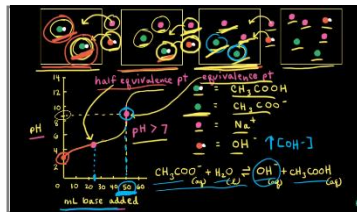 half equivalence pt
equivalence pt
14
12
10
8
6
4
2
0 10 20 30 40 50 60
pH
pH > 7
mL base added
= CH3COOH
= CH3COO-
= Na+
= OH-
↑[OH-]
CH3COO-(aq) + H2O(l) ⇌ OH-(aq) + CH3COOH(aq)